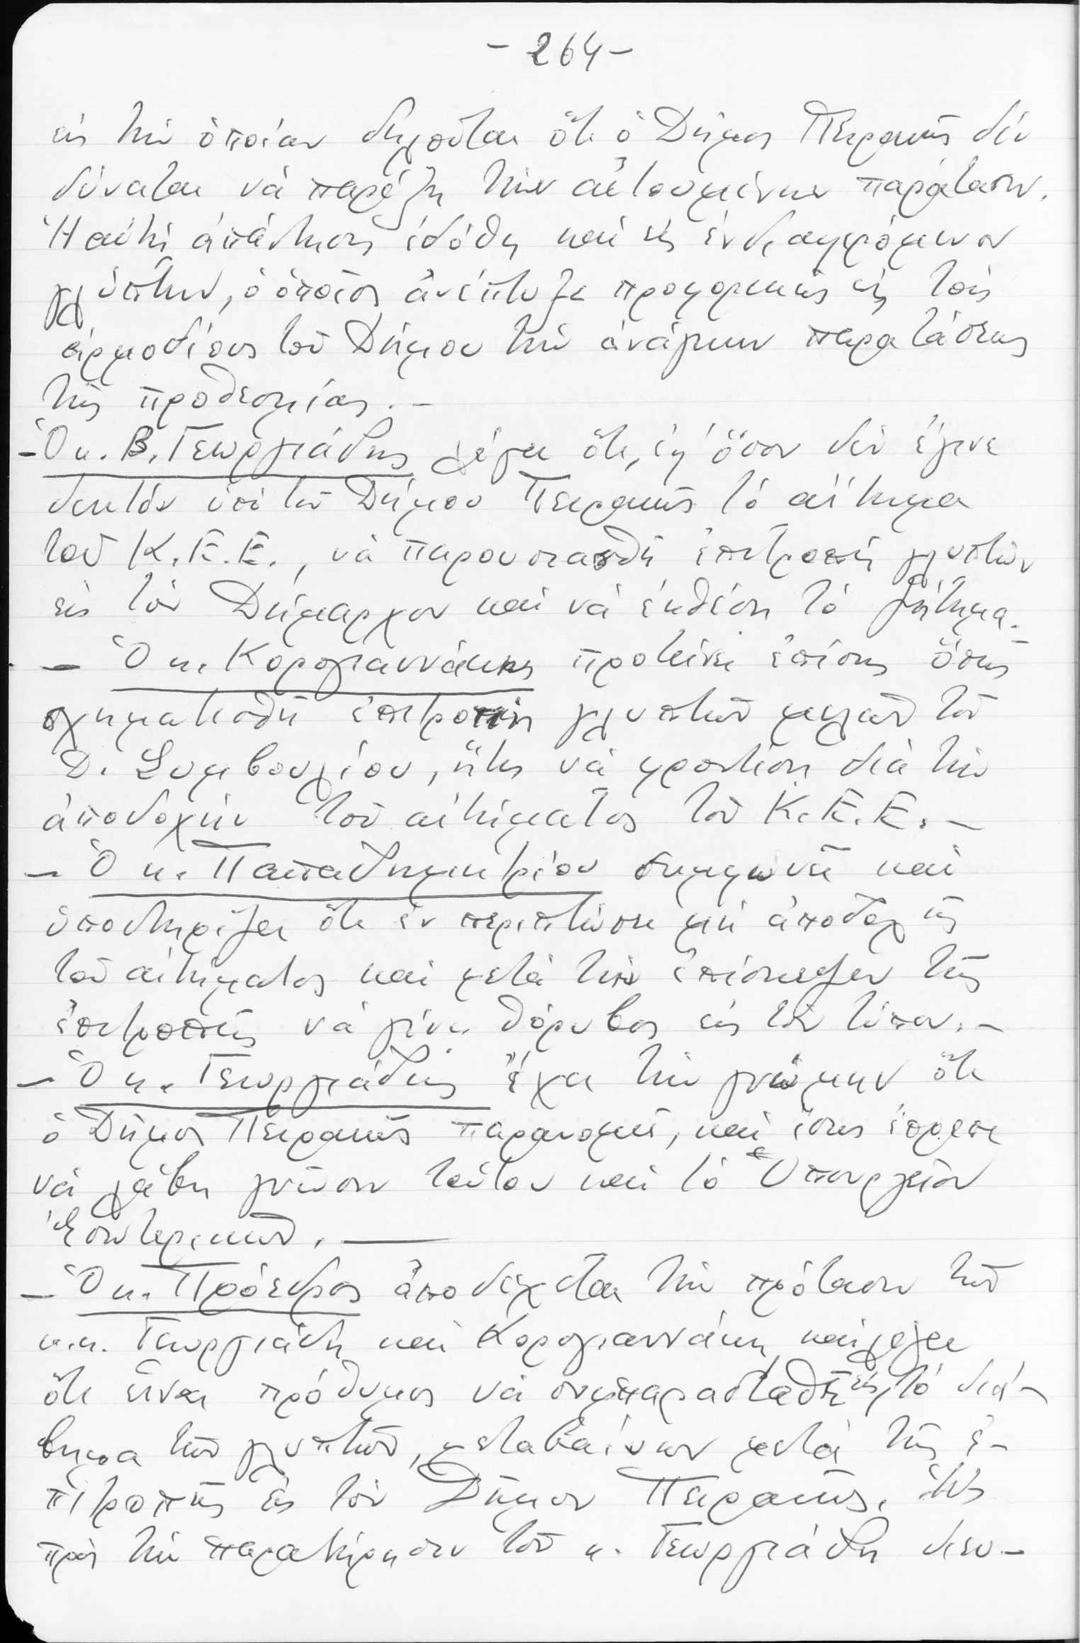 -264-
εἰς τὴν ὁποίαν δηλοῦται ὅτι ὁ Δῆμος Πειραιῶς δὲν
δύναται νὰ παρέξῃ τὴν αἰτουμένην παράτασιν.
Ἡ αὐτὴ ἀπάντησις ἐδόθη καὶ εἰς ἐνδιαφερόμενον
γλύπτην, ὁ ὁποῖος ἀνέπτυξε προφορικῶς εἰς τοὺς
ἁρμοδίους τοῦ Δήμου τὴν ἀνάγκην παρατάσεως
τῆς προθεσμίας.-
-Ὁ κ. Β. Γεωργιάδης λέγει ὅτι, ἐφ' ὅσον δὲν ἔγινε
δεκτὸν ὑπὸ τοῦ Δήμου Πειραιῶς τὸ αἴτημα
τοῦ Κ.Ε.Ε., νὰ παρουσιασθῇ ἐπιτροπὴ γλυπτῶν
εἰς τὸν Δήμαρχον καὶ νὰ ἐκθέσῃ τὸ ζήτημα.-
- Ὁ κ. Κορογιαννάκης προτείνει ἐπίσης ὅπως
σχηματισθῇ ἐπιτροπὴ γλυπτῶν μελῶν τοῦ
Δ. Συμβουλίου, ἥτις νὰ φροντίσῃ διὰ τὴν
ἀποδοχὴν τοῦ αἰτήματος τοῦ Κ.Ε.Ε.-
- Ὁ κ. Παπαδημητρίου συμφωνεῖ καὶ
ὑποστηρίζει ὅτι ἐν περιπτώσει μὴ ἀποδοχῆς
τοῦ αἰτήματος καὶ μετὰ τὴν ἐπίσκεψιν τῆς
ἐπιτροπῆς νὰ γίνῃ θόρυβος εἰς τὸν τύπον.-
- Ὁ κ. Γεωργιάδης ἔχει τὴν γνώμην ὅτι
ὁ Δῆμος Πειραιῶς παρανομεῖ, καὶ ἴσως ἔπρεπε
νὰ λάβῃ γνῶσιν τούτου καὶ τὸ Ὑπουργεῖον
Ἐσωτερικῶν.-
- Ὁ κ. Πρόεδρος ἀποδέχεται τὴν πρότασιν τῶν
κ.κ. Γεωργιάδη καὶ Κορογιαννάκη καὶ λέγει
ὅτι εἶναι πρόθυμος νὰ συμπαρασταθῇ εἰς τὸ διά-
βημα τῶν γλυπτῶν, μεταβαίνων μετὰ τῆς ἐ-
πιτροπῆς εἰς τὸν Δῆμον Πειραιῶς. Ὡς
πρὸς τὴν παρατήρησιν τοῦ κ. Γεωργιάδη διευ-